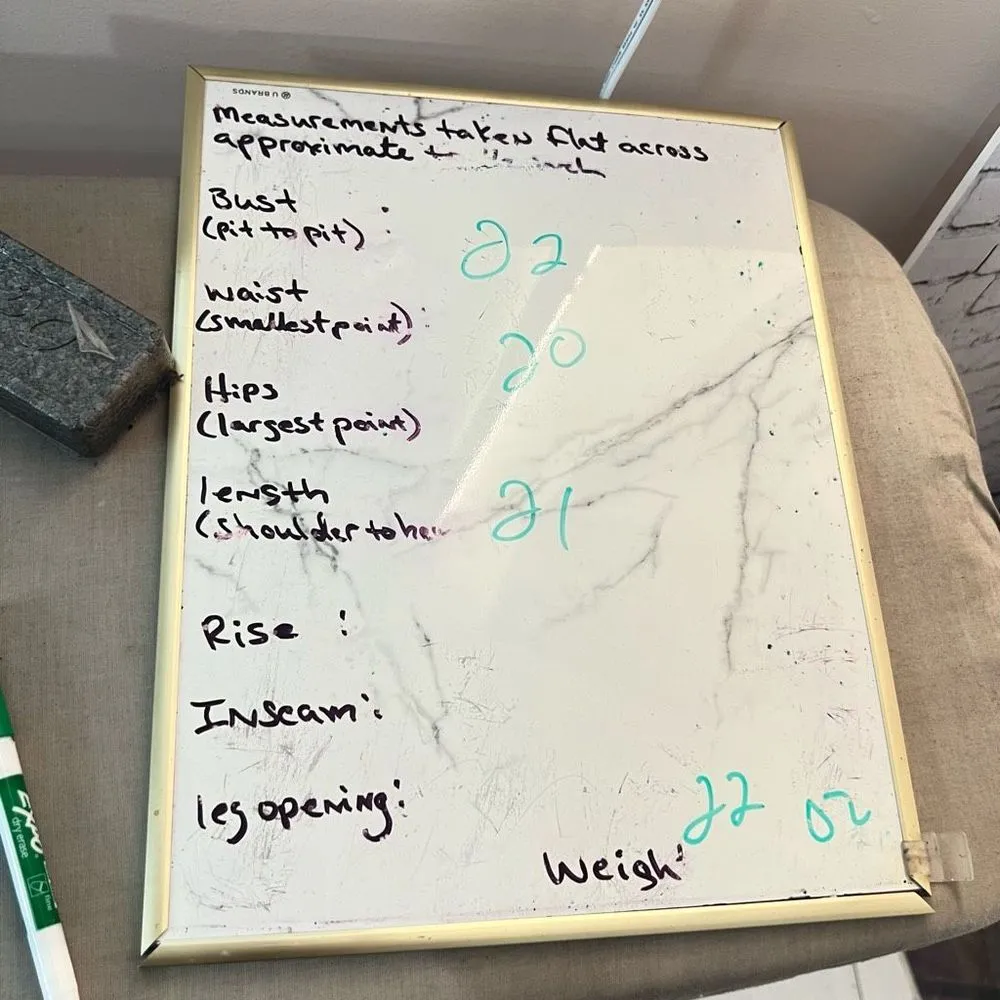 U BRANDS
Measurements taken flat across
approximate + inch
Bust :
(pit to pit)
22
waist :
(smallest point)
20
Hips
(largest point)
length
(shoulder to
21
Rise :
Inseam :
leg opening :
22 oz
Weigh
EXPO
dry erase